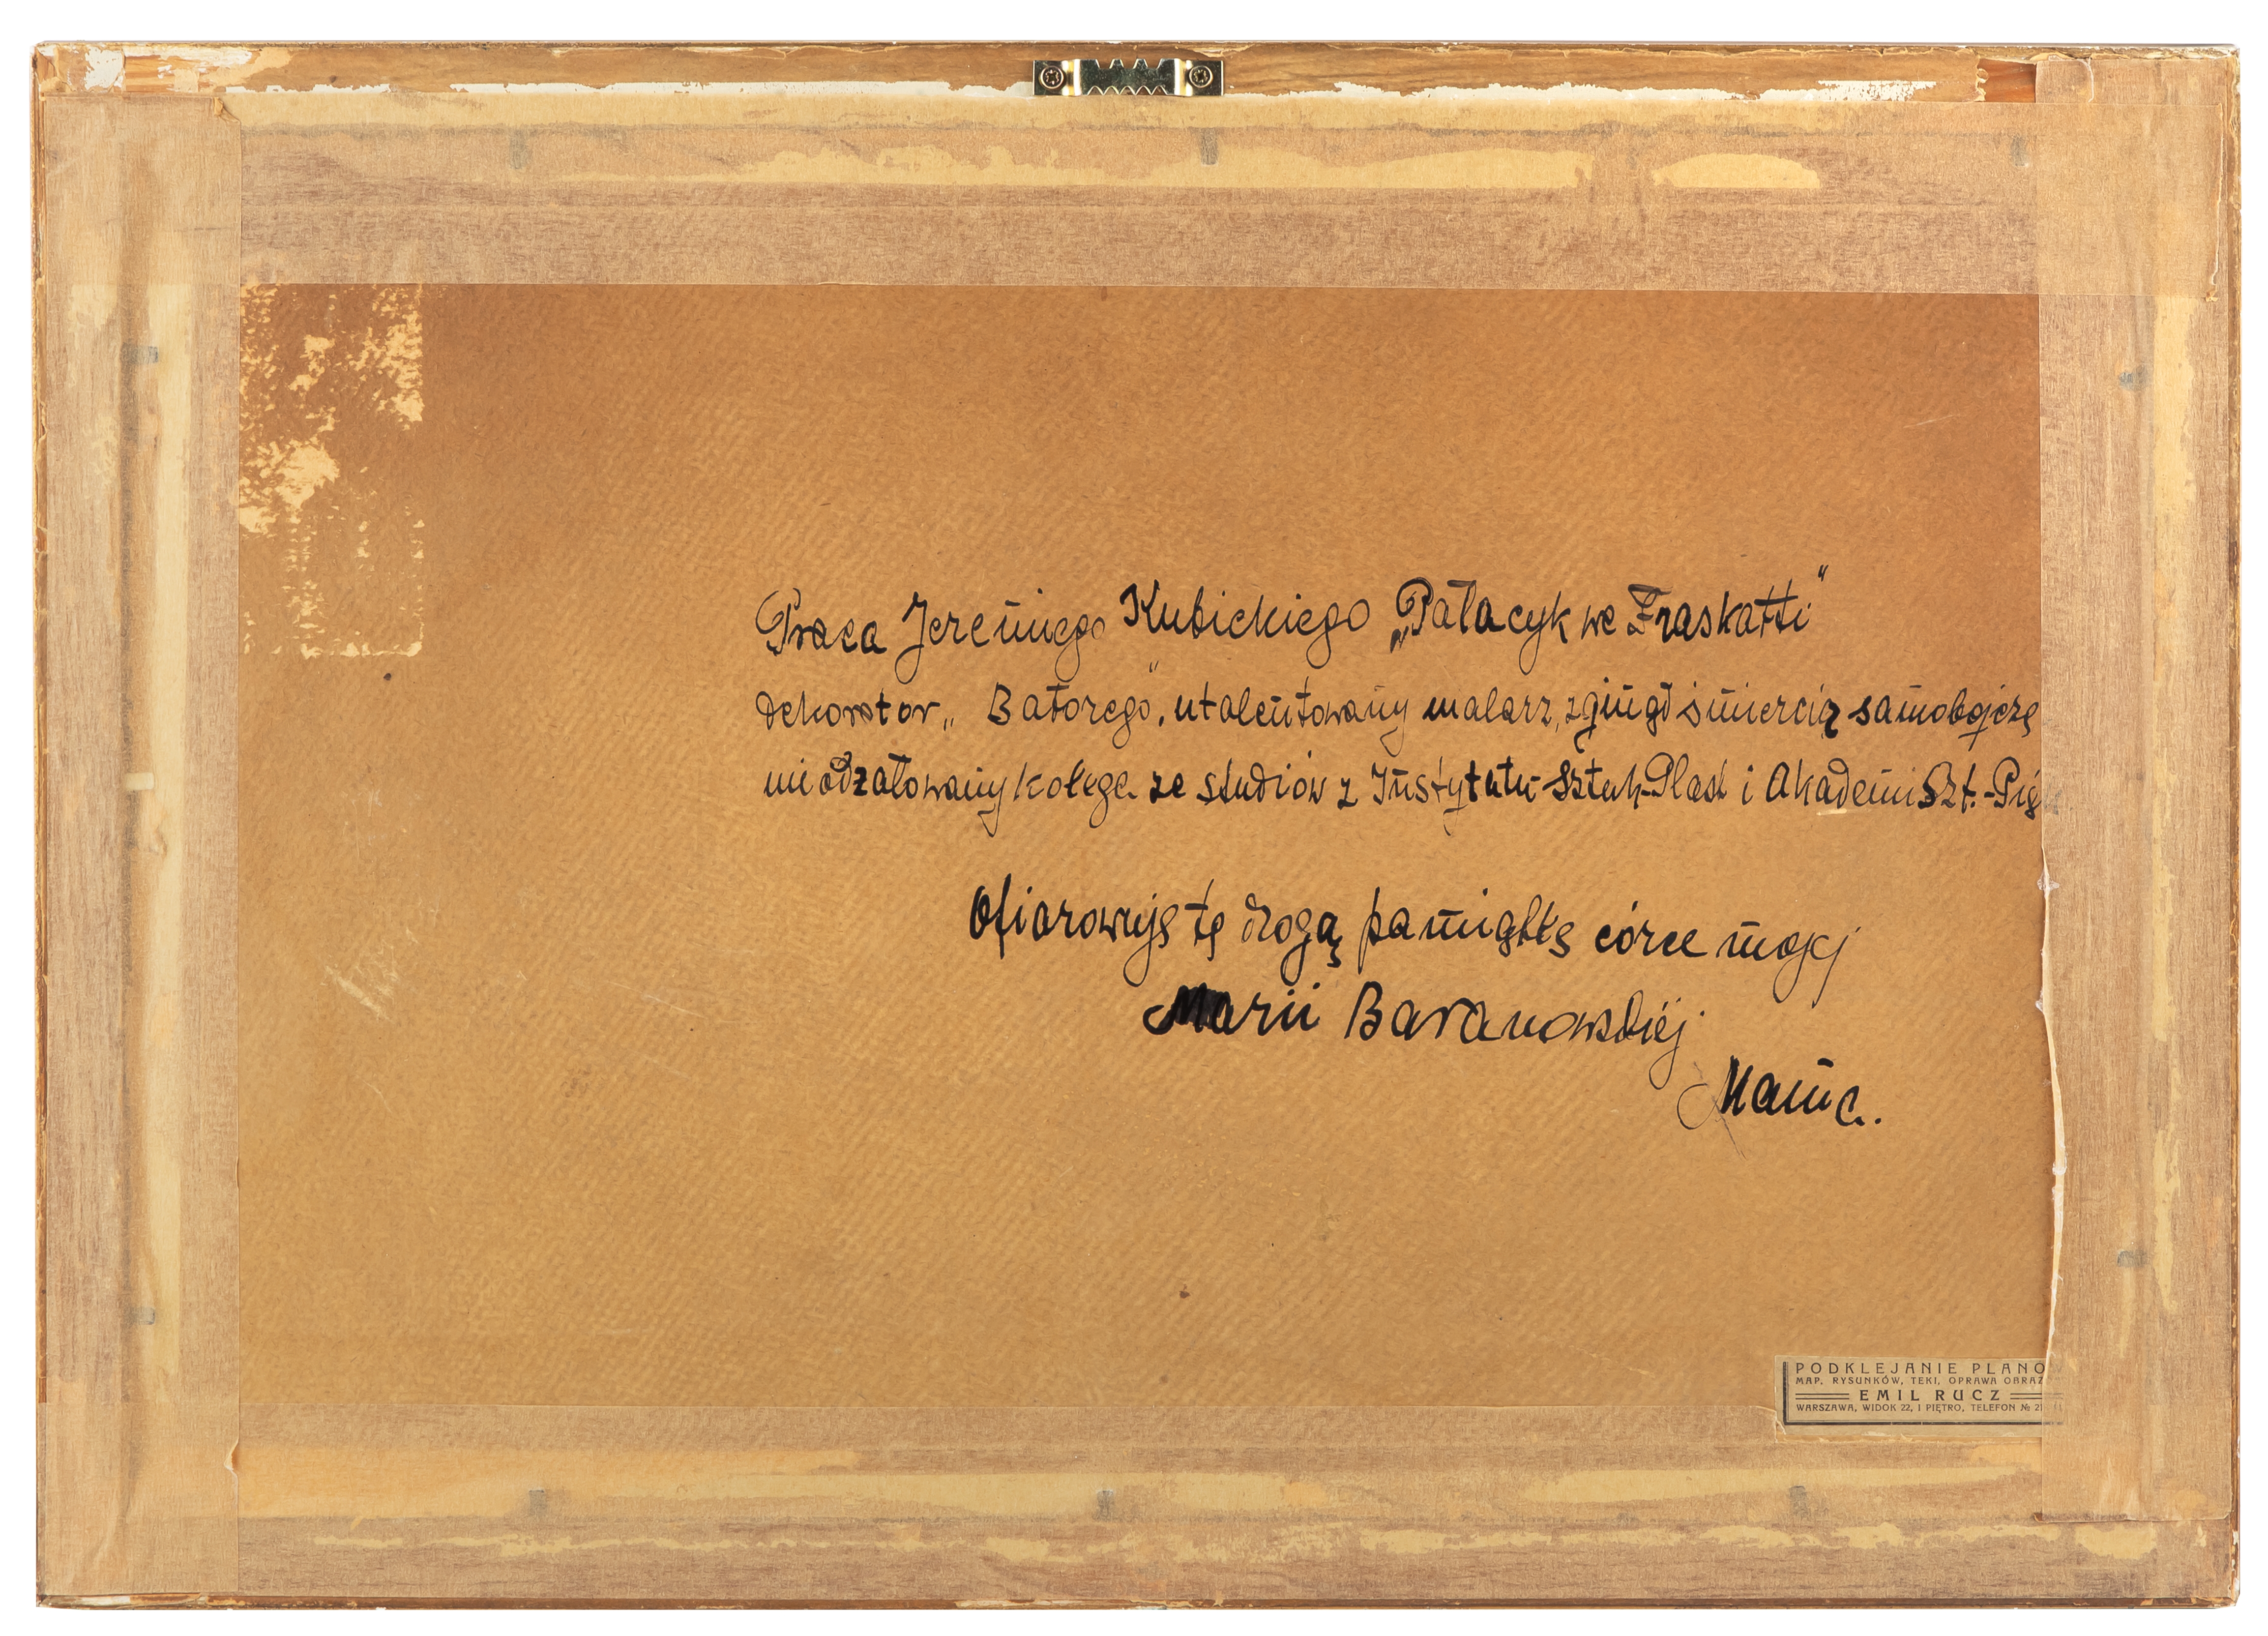 Praca Jeremiego Kubickiego „Pałacyk we Fraskatti"
dekorator „Batorego", utalentowany malarz, zginął śmiercią samobójczą
nieodżałowany kolega ze studiów z Instytutu Sztuk Plast i Akademi Szt.-Pię
Ofiarowuję tę drogą pamiątkę córce mojej
Marii Baranowskiej
Mama.
PODKLEJANIE PLANO
MAP, RYSUNKÓW, TEKI, OPRAWA OBRAZ
EMIL RUCZ
WARSZAWA, WIDOK 22, I PIĘTRO, TELEFON № 2